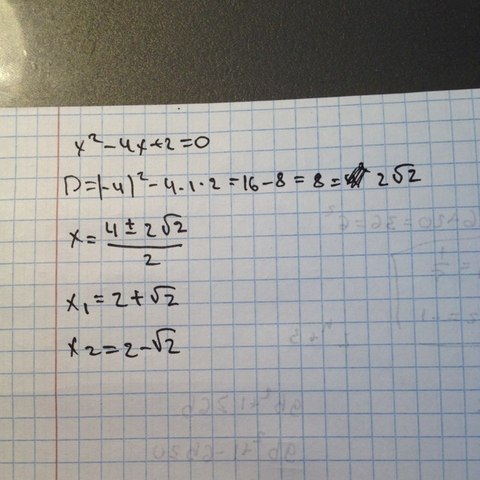 x² - 4x + 2 = 0
D = (-4)² - 4·1·2 = 16 - 8 = 8 = 2√2
x = (4 ± 2√2)/2
x₁ = 2 + √2
x₂ = 2 - √2